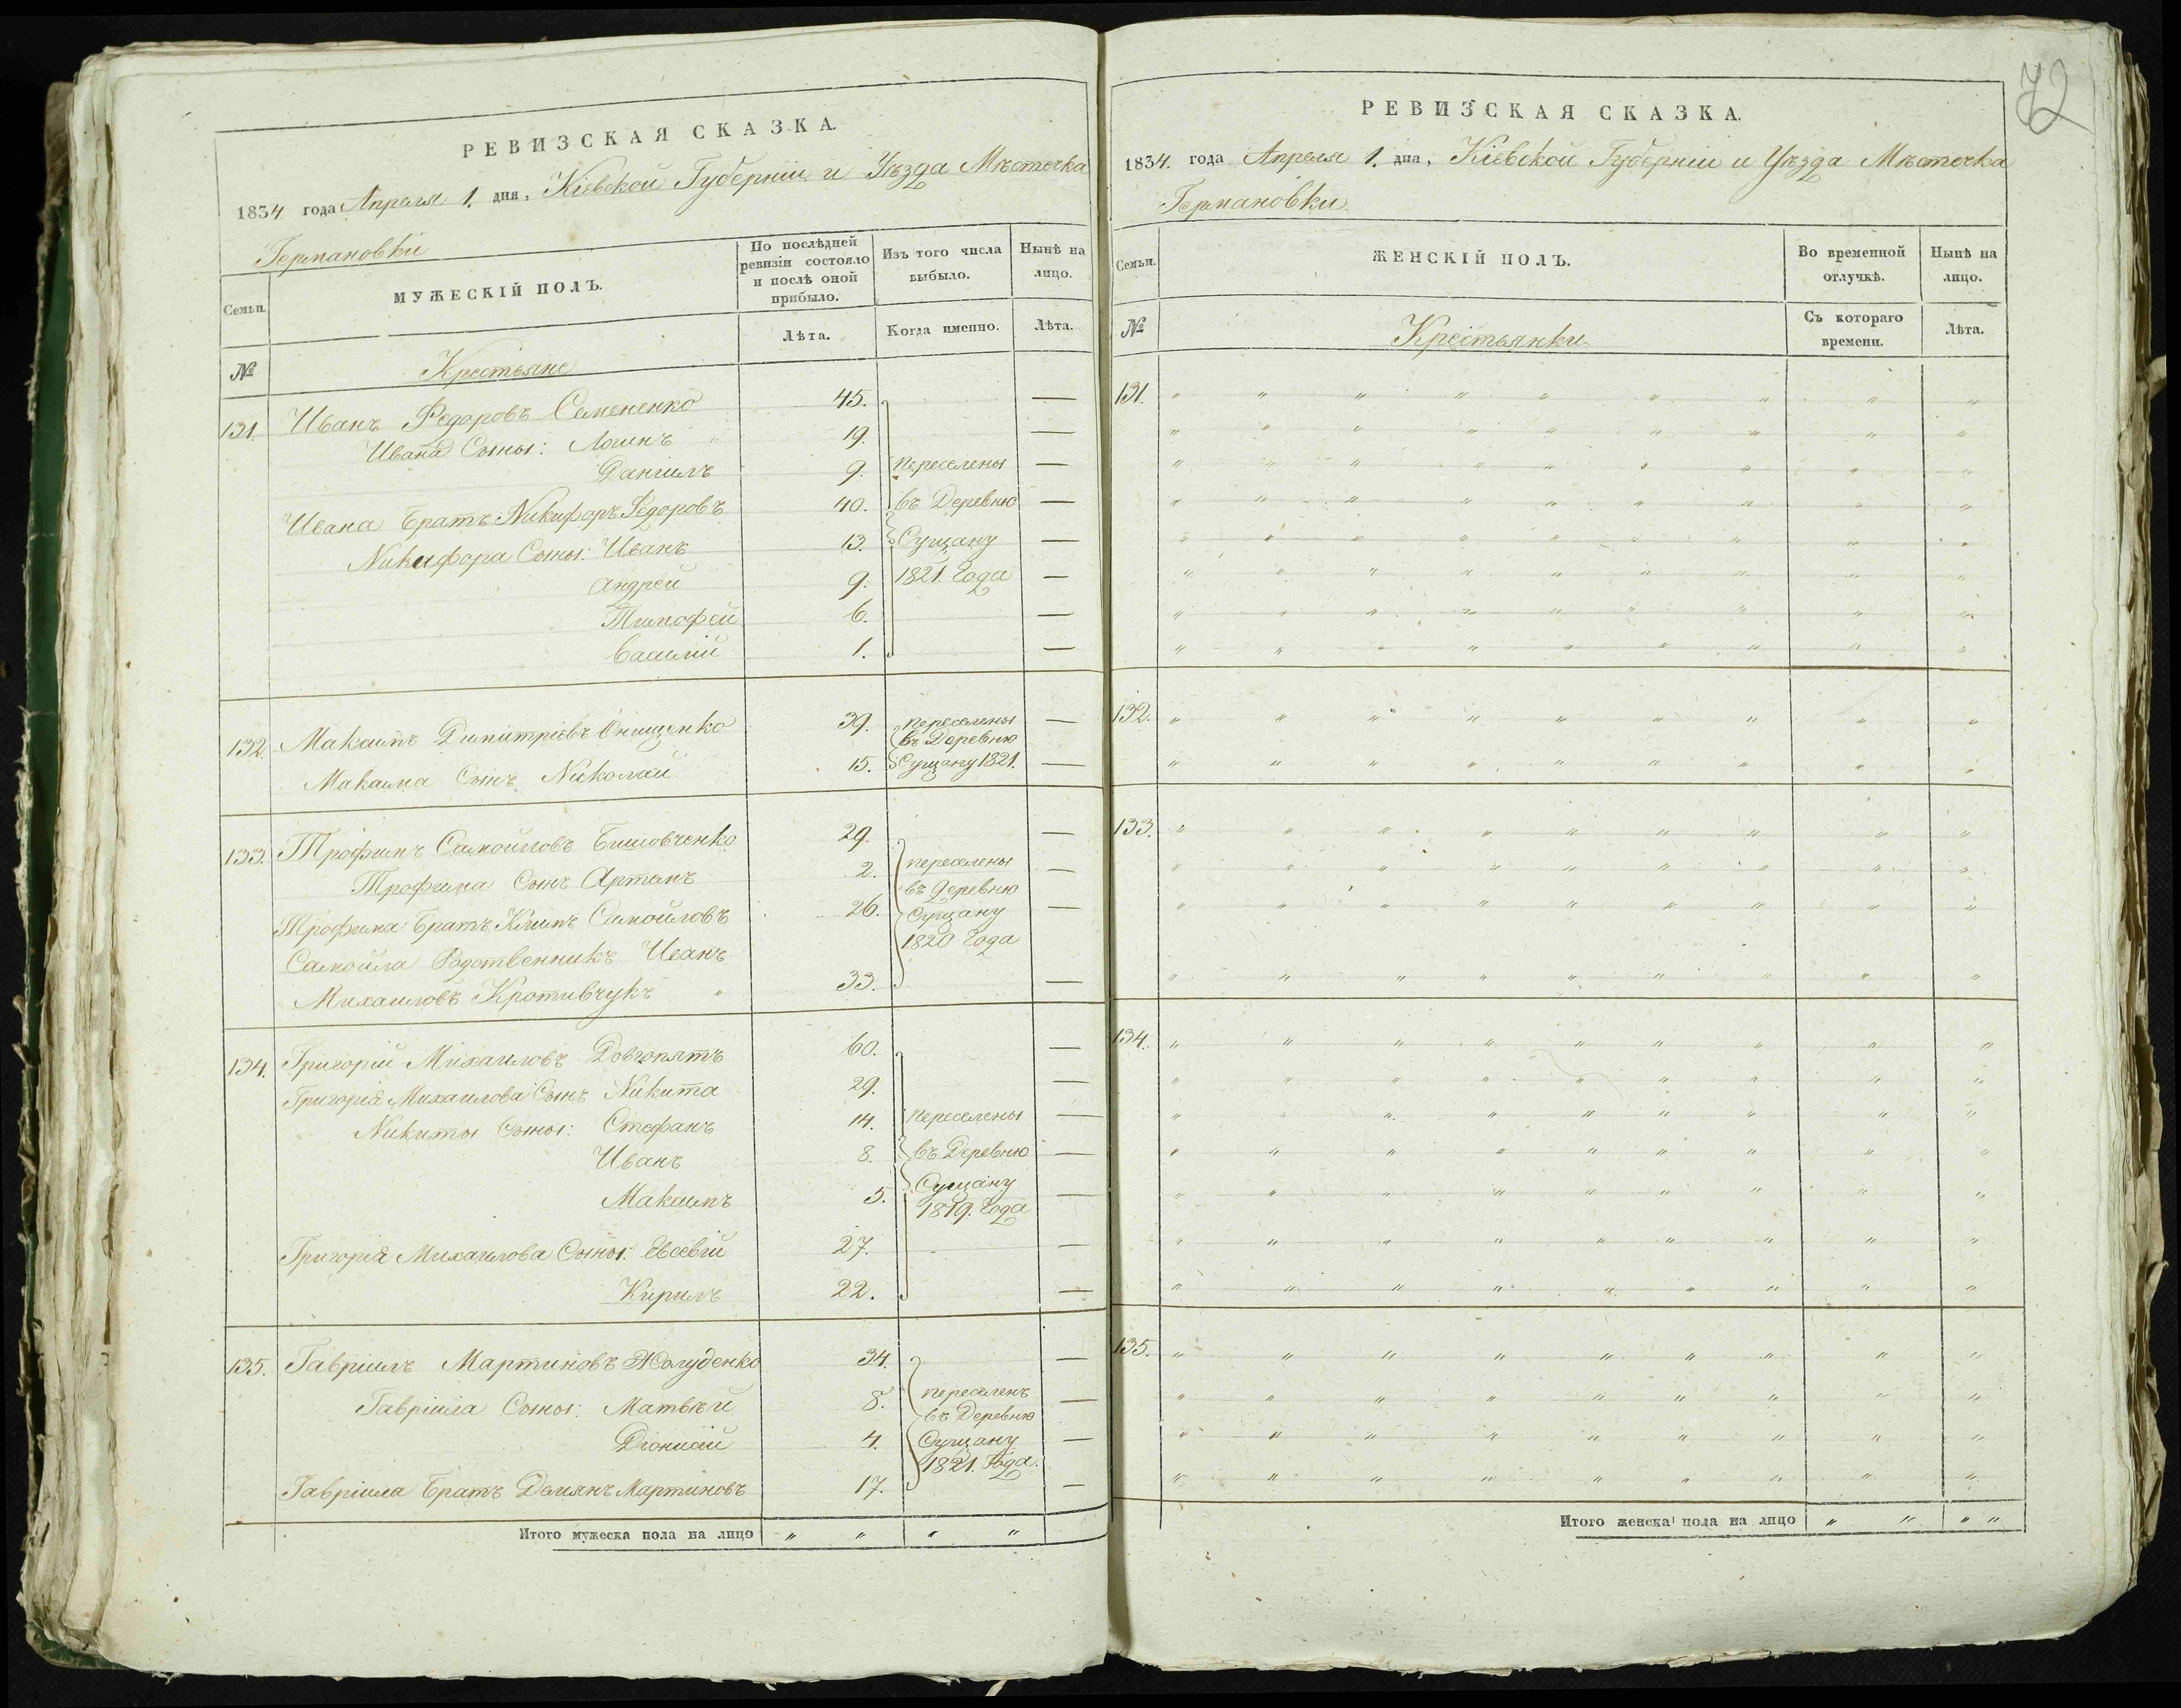 РЕВИЗСКАЯ СКАЗКА.
1834 года Апреля 1. дня, Кіевской Губерніи и Уѣзда Мѣстечка
Германовки
Семьи.
МУЖЕСКІЙ ПОЛЪ.
По послѣдней ревизіи состояло и послѣ оной прибыло.
Изъ того числа выбыло.
Нынѣ на лицо.
№
Крестьяне
Лѣта.
Когда именно.
Лѣта.
131. Иванъ Федоровъ Семененко 45. —
Ивана Сыны: Логинъ " 19. —
Даніилъ 9. переселены —
Ивана Братъ Никифоръ Федоровъ 40. въ Деревню —
Никифора Сыны: Иванъ 13. Сущану —
Андрей 9. 1821. Года —
Тимофей 6. —
Василій 1. —
132. Максимъ Димитріевъ Онищенко 39. переселены —
въ Деревню
Максима Сынъ Николай 15. Сущану 1821. —
133. Трофимъ Самойловъ 29. —
Трофима Сынъ Артемъ 2. переселены —
въ Деревню
Трофима Братъ Климъ Самойловъ 26. Сущану —
Самойла Родственникъ Иванъ 1820 Года
Михаиловъ Кротивчукъ " 33. —
134. Григорій Михаиловъ Довгопятъ 60. —
Григорія Михаилова Сынъ Никита 29. —
Никиты Сыны: Стефанъ 14. переселены —
Иванъ 8. въ Деревню —
Максимъ 5. Сущану —
1819. Года
Григорія Михаилова Сыны: Евсевій 27. —
Кирилъ 22. —
135. Гавріилъ Мартиновъ Жолуденко 34. —
Гавріила Сыны: Матвѣй 8. переселенъ —
въ Деревню
Діонисій 4. Сущану —
1821. Года.
Гавріила Братъ Демянъ Мартиновъ 17. —
Итого мужеска пола на лицо " " " "
72
РЕВИЗСКАЯ СКАЗКА.
1834. года Апреля 1. дна, Кіевской Губерніи и Уѣзда Мѣстечка
Германовки
Семьи.
ЖЕНСКІЙ ПОЛЪ.
Во временной отлучкѣ.
Нынѣ на лицо.
№
Крестьянки
Съ котораго времени.
Лѣта.
131. " " " " " " " " "
" " " " " " " " "
" " " " " " " " "
" " " " " " " " "
" " " " " " " " "
" " " " " " " " "
" " " " " " " " "
" " " " " " " " "
132. " " " " " " " " "
" " " " " " " " "
133. " " " " " " " " "
" " " " " " " " "
" " " " " " " " "
" " " " " " " " "
134. " " " " " " " " "
" " " " " " " " "
" " " " " " " " "
" " " " " " " " "
" " " " " " " " "
" " " " " " " " "
" " " " " " " " "
135. " " " " " " " " "
" " " " " " " " "
" " " " " " " " "
" " " " " " " " "
Итого женска пола на лицо " " " "